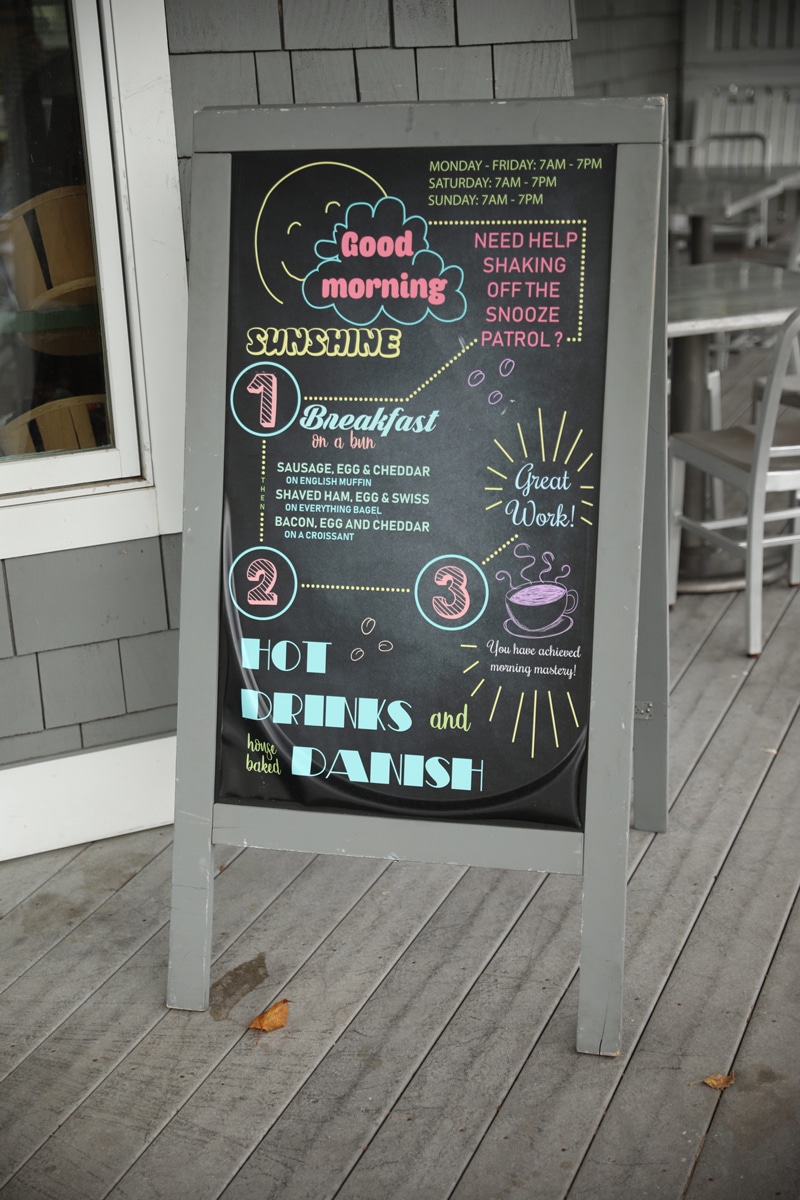 MONDAY - FRIDAY: 7AM - 7PM
SATURDAY: 7AM - 7PM
SUNDAY: 7AM - 7PM
Good
morning
SUNSHINE
NEED HELP
SHAKING
OFF THE
SNOOZE
PATROL?
1
Breakfast
on a bun
SAUSAGE, EGG & CHEDDAR
ON ENGLISH MUFFIN
SHAVED HAM, EGG & SWISS
ON EVERYTHING BAGEL
BACON, EGG AND CHEDDAR
ON A CROISSANT
THEN
2
HOT
DRINKS and
house
baked DANISH
3
Great
Work!
You have achieved
morning mastery!